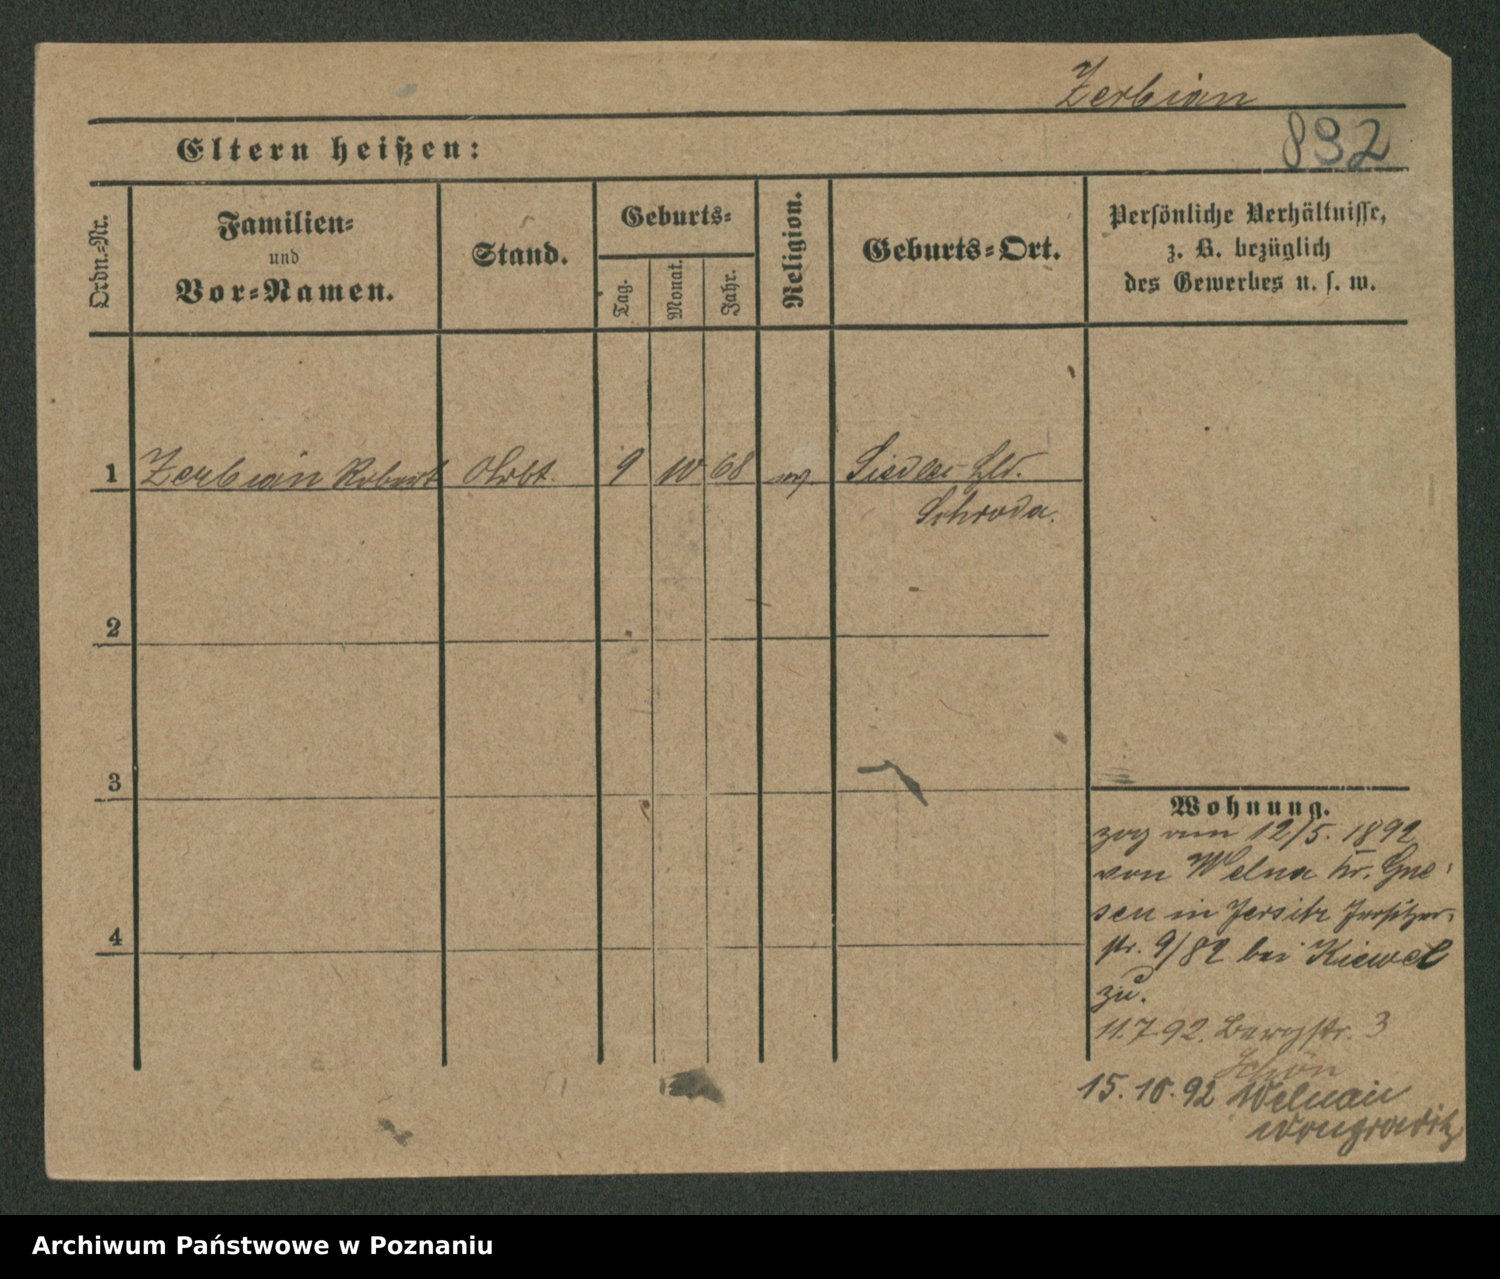 Zerbian
892
Eltern heißen:
Ordn.-Nr.
Familien-
und
Vor-Namen.
Stand.
Geburts-
Tag.
Monat.
Jahr.
Religion.
Geburts-Ort.
Persönliche Verhältnisse,
z. B. bezüglich
des Gewerbes u. s. w.
1 Zerbian Robert 9 10 68
Schroda.
2
3
4
Wohnung.
zog am 12/5. 1892
von Welna Kr. Gne-
sen in Jersitz Jersitzer-
str. 9/82 bei Kiewel
zu.
11.7.92. Bergstr. 3
Schön
15.10.92 Welnau
Wongrowitz
Archiwum Państwowe w Poznaniu